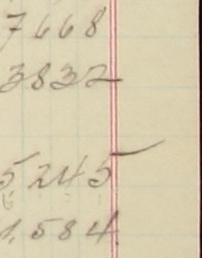 7668
3832
5245
1,584